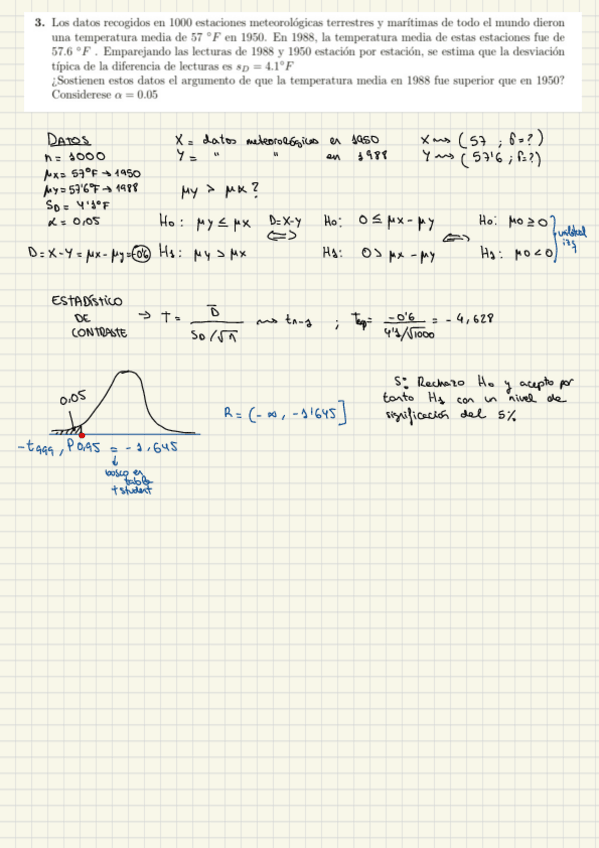 3. Los datos recogidos en 1000 estaciones meteorológicas terrestres y marítimas de todo el mundo dieron
una temperatura media de 57 °F en 1950. En 1988, la temperatura media de estas estaciones fue de
57.6 °F . Emparejando las lecturas de 1988 y 1950 estación por estación, se estima que la desviación
típica de la diferencia de lecturas es s_D = 4.1°F
¿Sostienen estos datos el argumento de que la temperatura media en 1988 fue superior que en 1950?
Considerese α = 0.05
DATOS
n = 1000
μx = 57°F → 1950
μy = 57'6°F → 1988
S_D = 4'1°F
α = 0,05
D = X-Y = μx - μy = -0'6
X = datos meteorológicos en 1950
Y = " " en 1988
X ~ (57 ; σ=?)
Y ~ (57'6 ; σ=?)
μy > μx ?
Ho: μy ≤ μx D=X-Y Ho: 0 ≤ μx - μy Ho: μD ≥ 0
H1: μy > μx <=> H1: 0 > μx - μy <=> H1: μD < 0
unilateral
izq
ESTADÍSTICO
DE
CONTRASTE
→ T = D̄ / (SD/√n) ~ tn-1 ; Texp = -0'6 / (4'1/√1000) = - 4,628
0.05
-t999, P0,95 = -1,645
busco en
tabla
t student
R = (-∞, -1'645]
Sí Rechazo Ho y acepto por
tanto H1 con un nivel de
significación del 5%